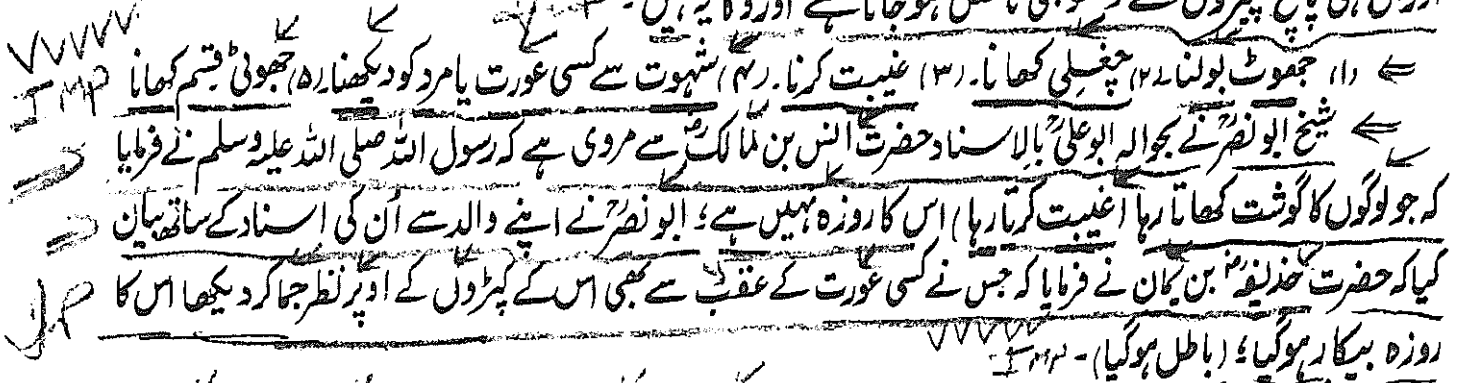 ہوجاتا ہے اور وہ یہ ہیں۔
(۱) جھوٹ بولنا۔ (۲) چغلی کھانا۔ (۳) غیبت کرنا۔ (۴) شہوت سے کسی عورت یا مرد کو دیکھنا۔ (۵) جھوٹی قسم کھانا
IMP
شیخ ابو نصرؒ نے بحوالہ ابو علیؒ بالاسناد حضرت انس بن مالکؓ سے مروی ہے کہ رسول اللہ صلی اللہ علیہ وسلم نے فرمایا
کہ جو لوگوں کا گوشت کھاتا رہا (غیبت کرتا رہا) اس کا روزہ نہیں ہے؛ ابو نصرؒ نے اپنے والد سے اُن کی اسناد کے ساتھ بیان
کیا کہ حضرت حذیفہؓ بن یمان نے فرمایا کہ جس نے کسی عورت کے عقب سے بھی اس کے کپڑوں کے اوپر نظر جما کر دیکھا اس کا
روزہ بیکار ہوگیا؛ (باطل ہوگیا)۔ IMP